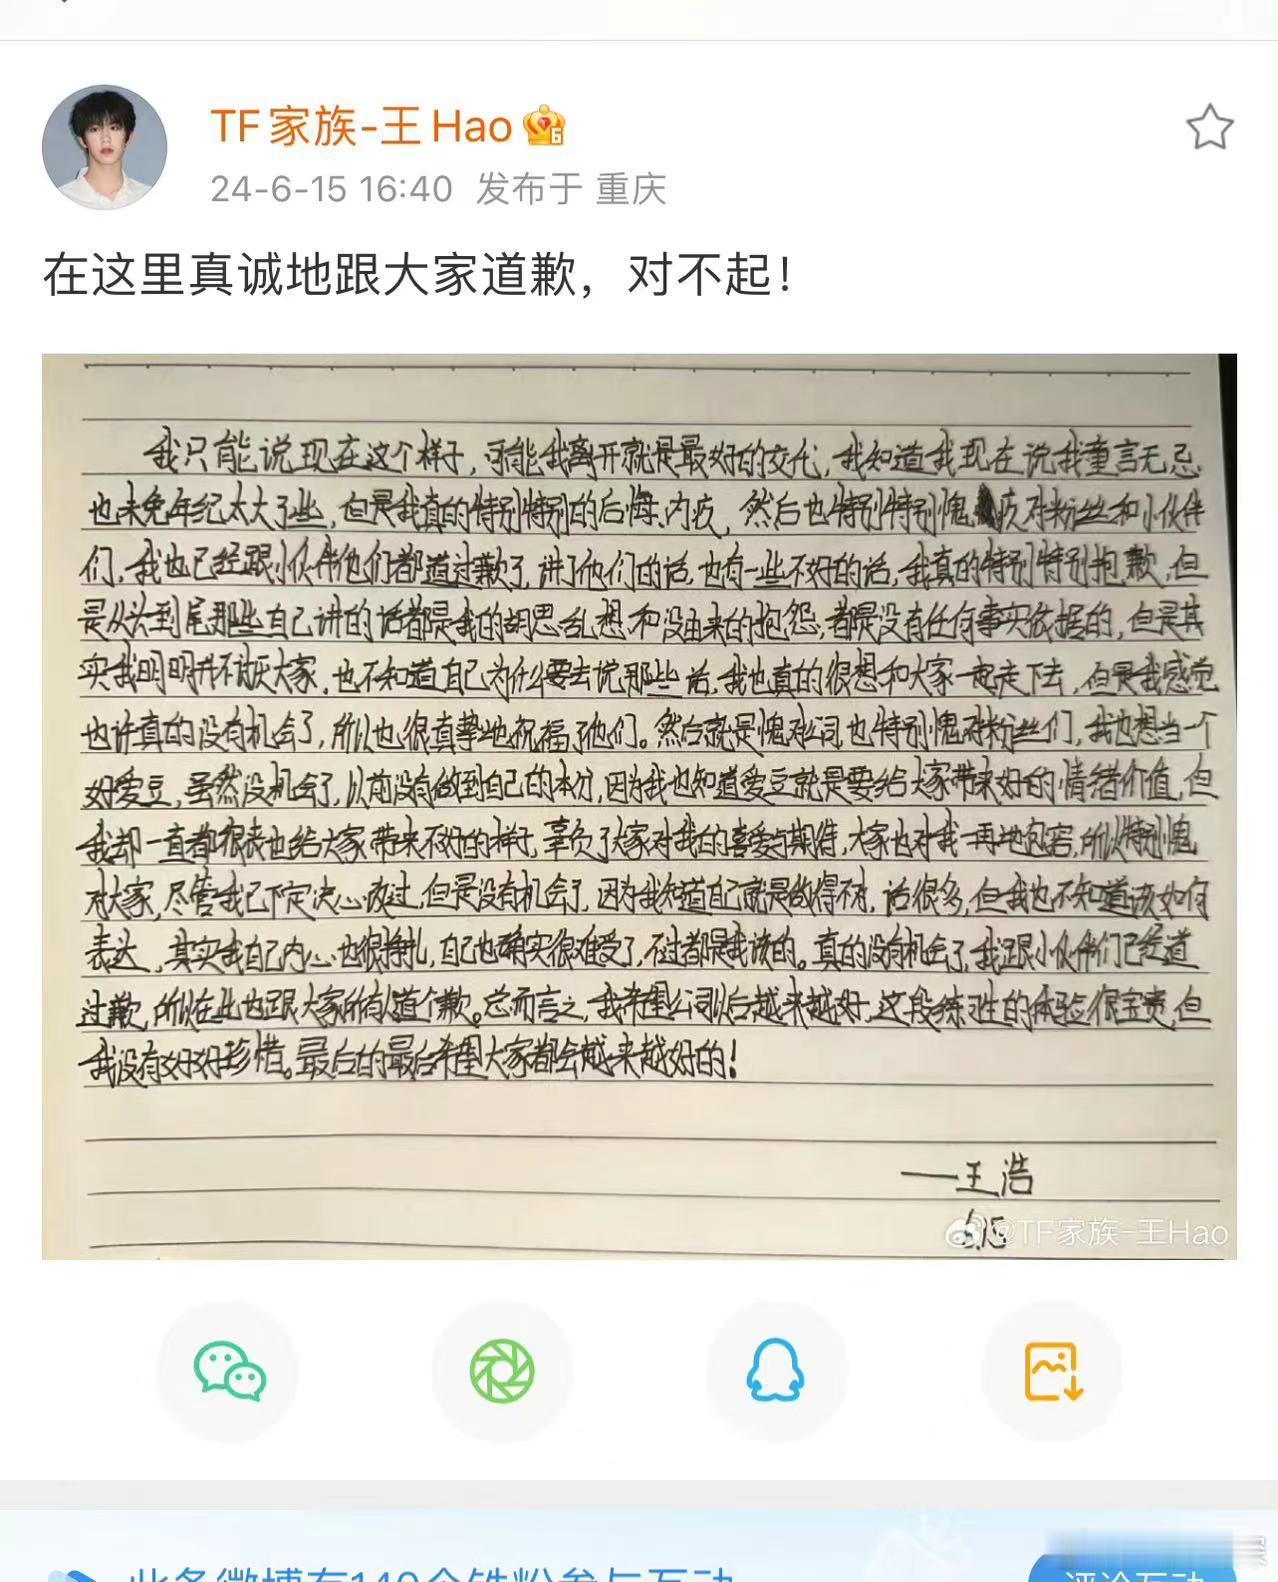 TF家族-王Hao
24-6-15 16:40 发布于 重庆
在这里真诚地跟大家道歉，对不起！
我只能说现在这个样子，可能我离开就是最好的交代，我知道我现在说我童言无忌
也未免年纪太大了些，但是我真的特别特别的后悔、内疚，然后也特别特别愧疚对粉丝和小伙伴
们，我也已经跟小伙伴他们都道过歉了，讲了他们的话，也有一些不好的话，我真的特别特别抱歉，但
是从头到尾那些自己讲的话都是我的胡思乱想和没由来的抱怨，都是没有任何事实依据的，但是其
实我明明并不讨厌大家，也不知道自己为什么要去说那些话，我也真的很想和大家一起走下去，但是我感觉
也许真的没有机会了，所以也很真挚地祝福了他们。然后就是愧对公司也特别愧对粉丝们，我也想当一个
好爱豆，虽然没机会了，以前没有做到自己的本分，因为我也知道爱豆就是要给大家带来好的情绪价值，但
我却一直都很表也给大家带来不好的样子，辜负了大家对我的喜爱与期待，大家也对我一再地包容，所以特别愧
对大家，尽管我已下定决心改过，但是没有机会了，因为我知道自己就是做得不对，话很多，但我也不知道该如何
表达，其实我自己内心也很挣扎，自己也确实很难受了，不过都是我该的。真的没有机会了，我跟小伙伴们已经道
过歉，所以在此也跟大家所以道个歉。总而言之，我希望公司以后越来越好，这段练习生的体验很宝贵，但
我没有好好珍惜。最后的最后希望大家都会越来越好的！
——王浩
6.15
@TF家族-王Hao
此条微博有140个铁粉参与互动
评论互动